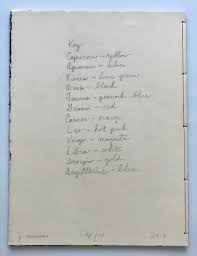 Key:
Capricorn – yellow
Aquarius – silver
Pisces – lime green
Aries – black
Taurus – peacock blue
Gemini – red
Cancer – orange
Leo – hot pink
Virgo – magenta
Libra – white
Scorpio – gold
Sagittarius – blue
J.